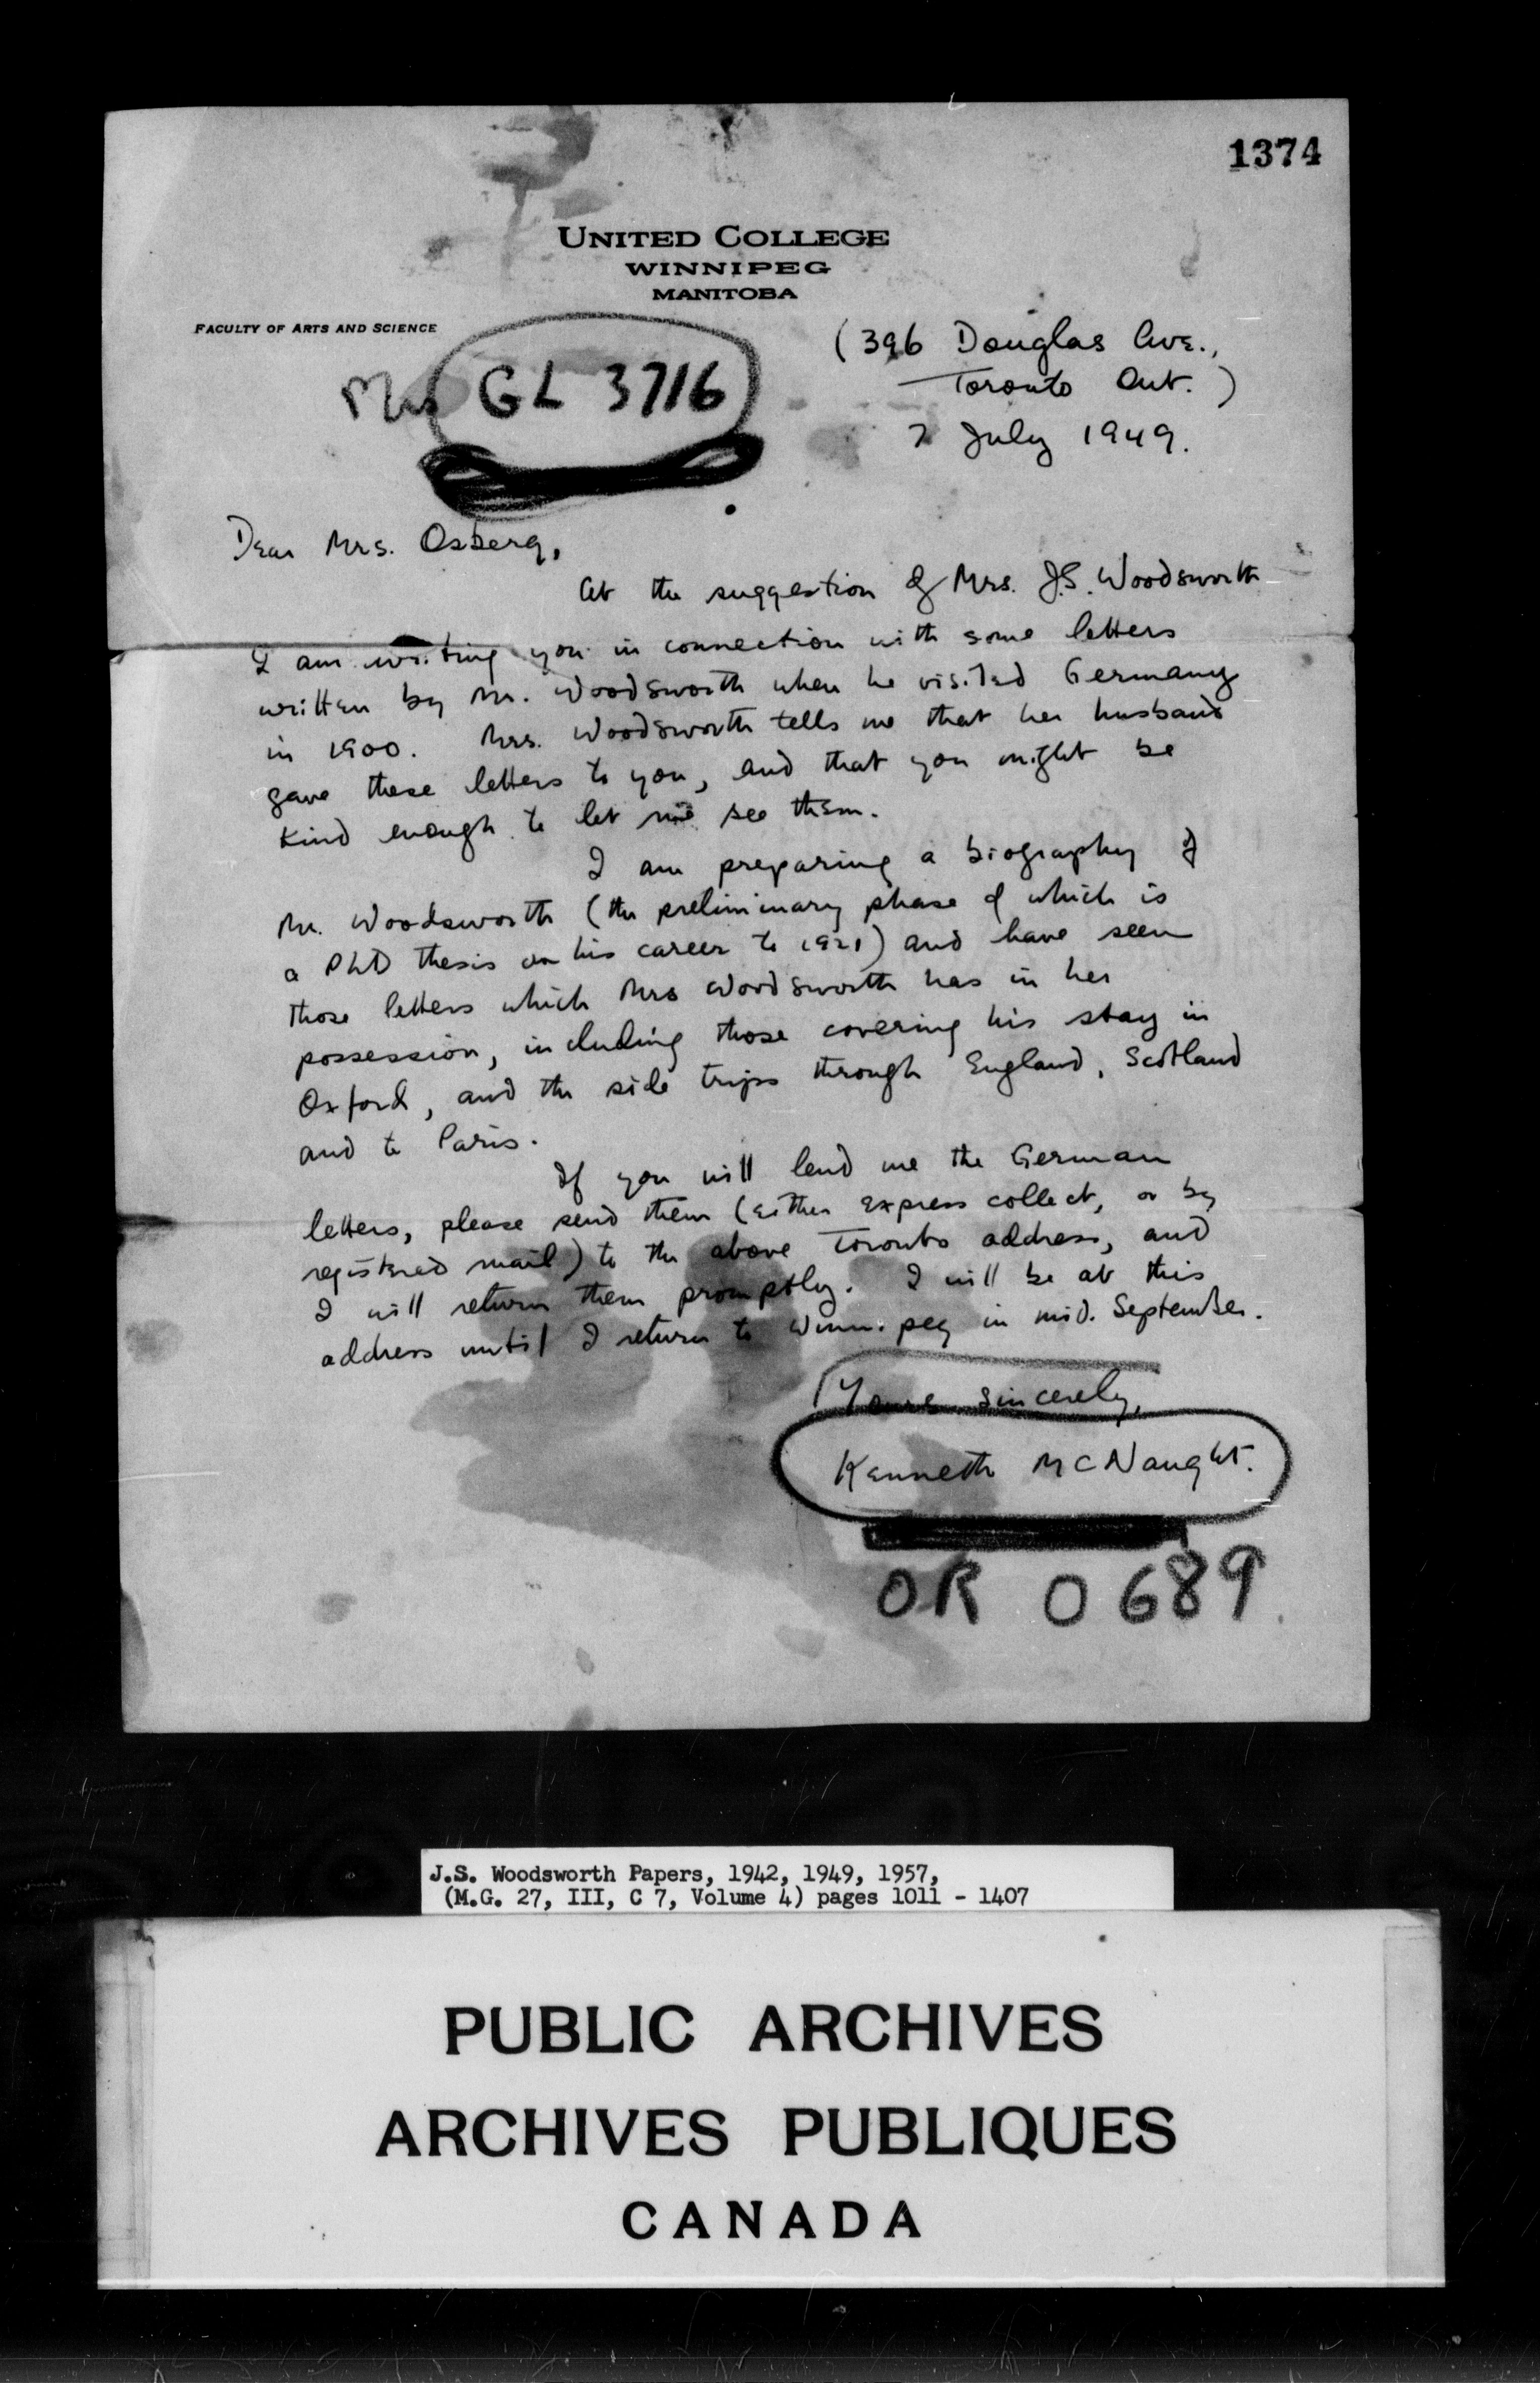 1374
UNITED COLLEGE
WINNIPEG
MANITOBA
FACULTY OF ARTS AND SCIENCE
(396 Douglas Ave.,
Toronto Ont.)
GL 3716
July 1949.
Dear Mrs. Osberg,
At the suggestion of Mrs. J.S. Woodsworth
I am writing you in connection with some letters
written by Mr. Woodsworth when he visited Germany
in 1900. Mrs. Woodsworth tells me that her husband
gave these letters to you, and that you might be
kind enough to let me see them.
I am preparing a biography of
Mr. Woodsworth (the preliminary phase of which is
a PhD thesis on his career to 1921) and have seen
those letters which Mrs Woodsworth has in her
possession, including those covering his stay in
Oxford, and the side trips through England, Scotland
and to Paris.
If you will lend me the German
letters, please send them (either express collect, or by
registered mail) to the above Toronto address, and
I will return them promptly. I will be at this
address until I return to Winnipeg in mid. September.
Yours sincerely,
Kenneth McNaught.
OR 0689
J.S. Woodsworth Papers, 1942, 1949, 1957,
(M.G. 27, III, C 7, Volume 4) pages 1011 - 1407
PUBLIC ARCHIVES
ARCHIVES PUBLIQUES
CANADA